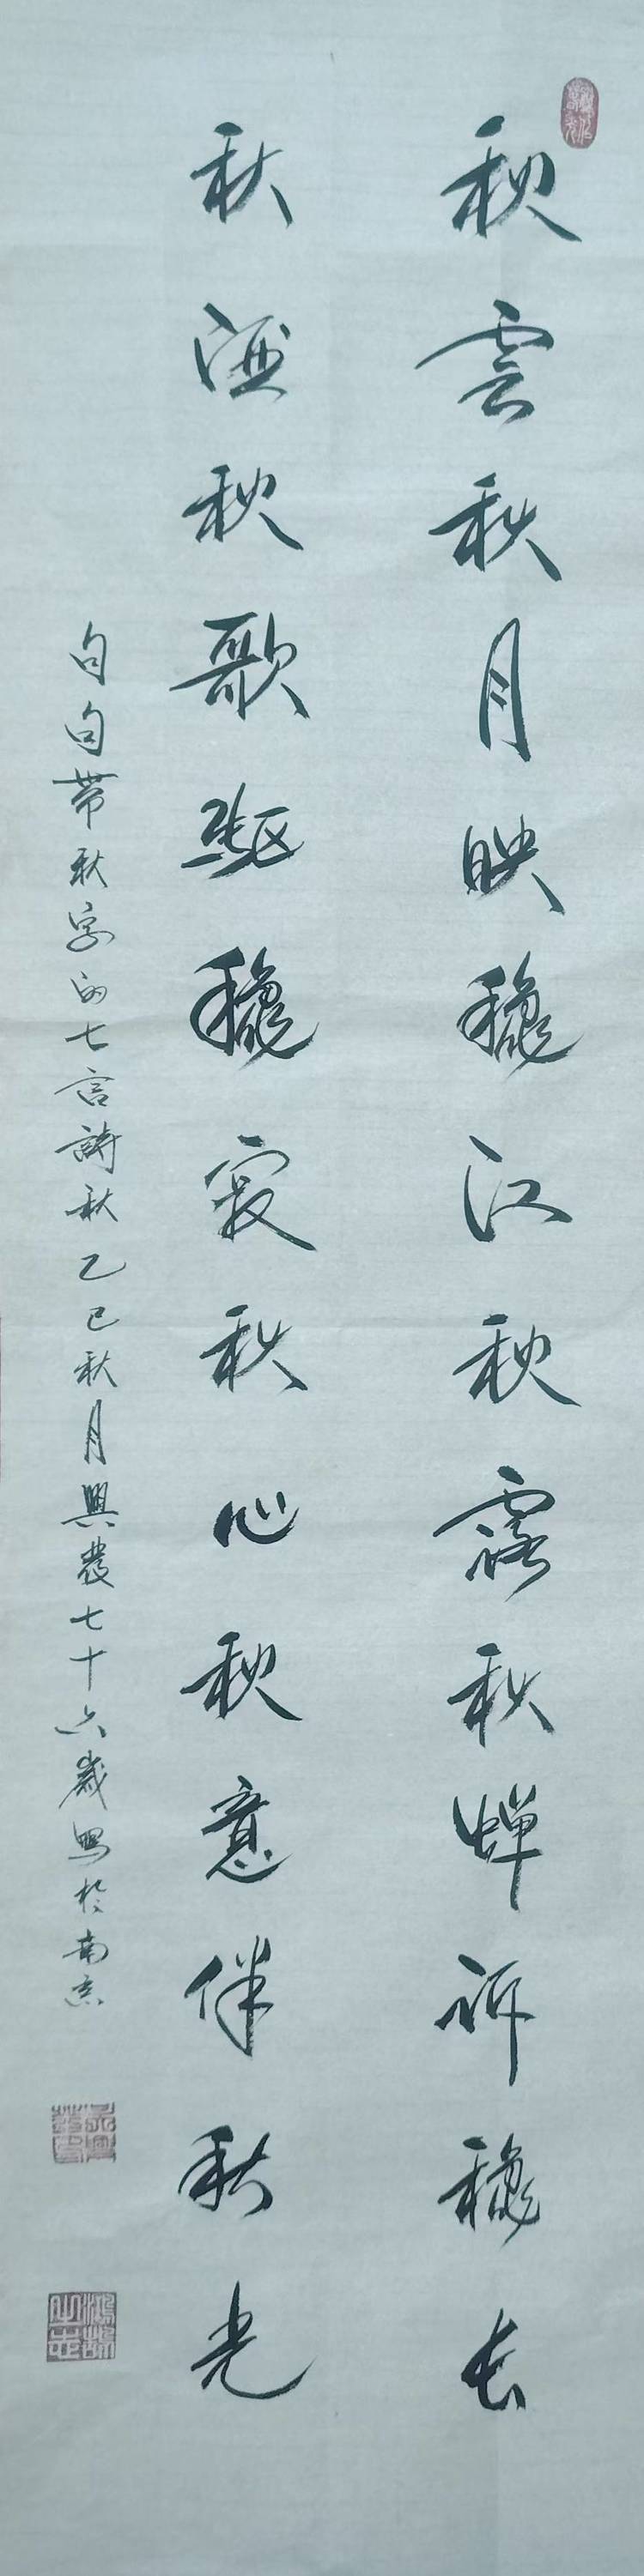 秋雲秋月映龝江秋露秋蝉訴龝长
秋酒秋歌驱龝寂秋心秋意伴秋光
句句带秋字的七言詩秋乙巳秋月興發七十六歲写於南京